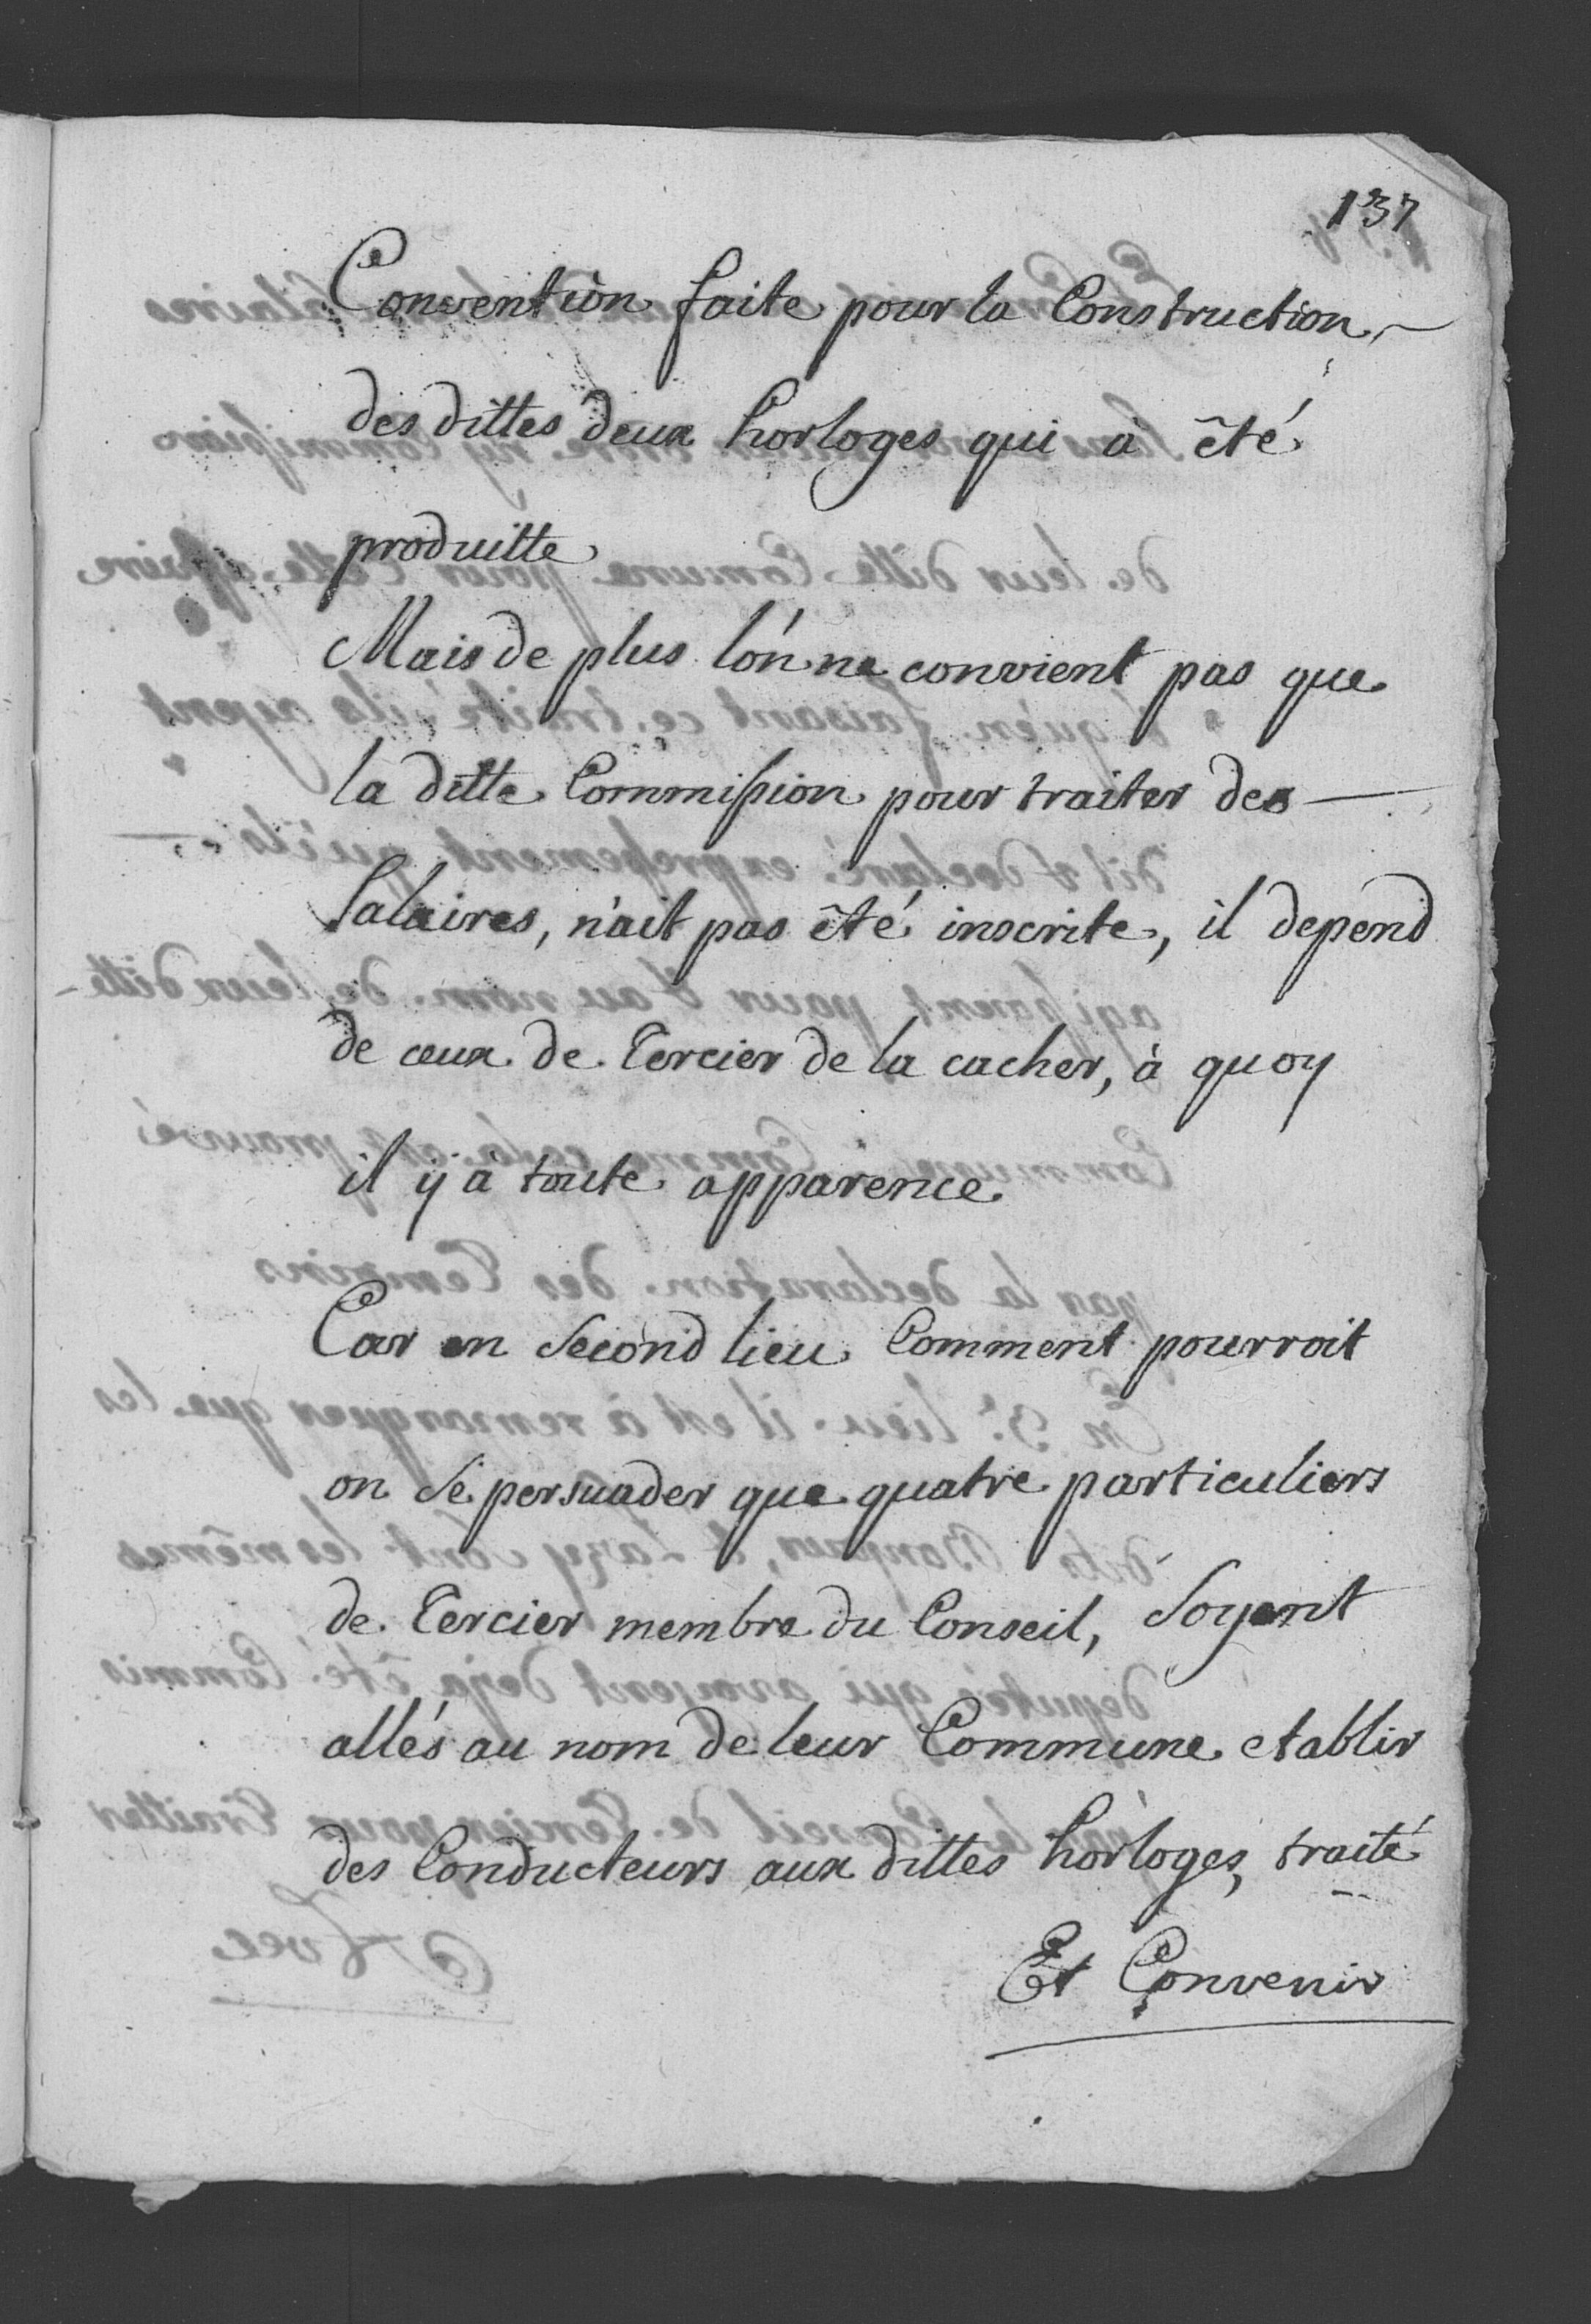 137
Convention faite pour la Construction
des dittes deux horloges qui à êté
produitte
Mais de plus l'on ne convient pas que
la ditte Commission pour traiter des
Salaires, n'ait pas êté inscrite, il depend
de ceux de Tercier de la cacher, à quoy
il ÿ à toute apparence
Car en Second lieu Comment pourroit
on Se persuader que quatre particuliers
de Tercier membre du Conseil, Soyent
allés au nom de leur Commune etablir
des Conducteurs aux dittes horloges, traité
Et Convenir